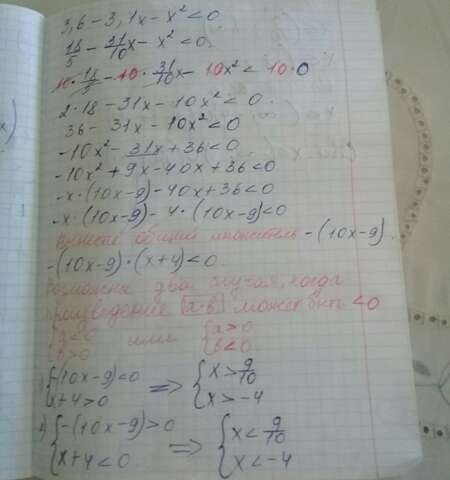 3,6 - 3,1x - x² < 0
18/5 - 31/10x - x² < 0.
10 · 18/5 - 10 · 31/10x - 10x² < 10 · 0
2 · 18 - 31x - 10x² < 0.
36 - 31x - 10x² < 0
-10x² - 31x + 36 < 0.
-10x² + 9x - 40x + 36 < 0
-x · (10x - 9) - 40x + 36 < 0
-x · (10x - 9) - 4 · (10x - 9) < 0
Вынесем общий множитель - (10x - 9).
-(10x - 9) · (x + 4) < 0
Возможны два случая, когда
произведение a · b может быть < 0
{a < 0 или {a > 0
{b > 0 {b < 0
{-(10x - 9) < 0 => {x > 9/10
{x + 4 > 0 {x > -4
{-(10x - 9) > 0 => {x < 9/10
{x + 4 < 0 {x < -4